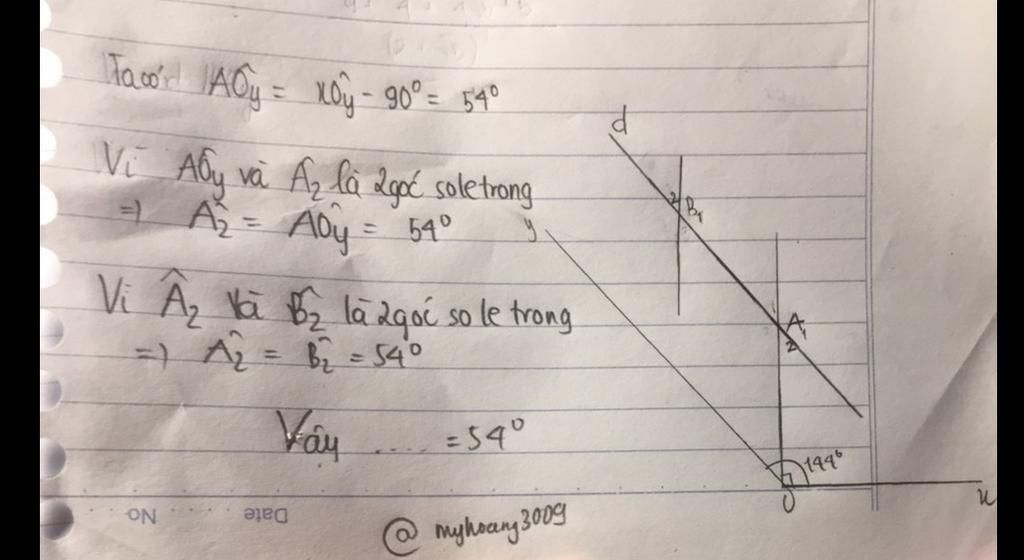 Ta có: AÔy = xÔy - 90° = 54°
Vì AÔy và Â2 là 2 góc so le trong
=> Â2 = AÔy = 54°
Vì Â2 và B̂2 là 2 góc so le trong
=> Â2 = B̂2 = 54°
Vậy .... = 54°
d
2 B1
y
A1
2
144°
O
x
No Date
@ myhoang3009